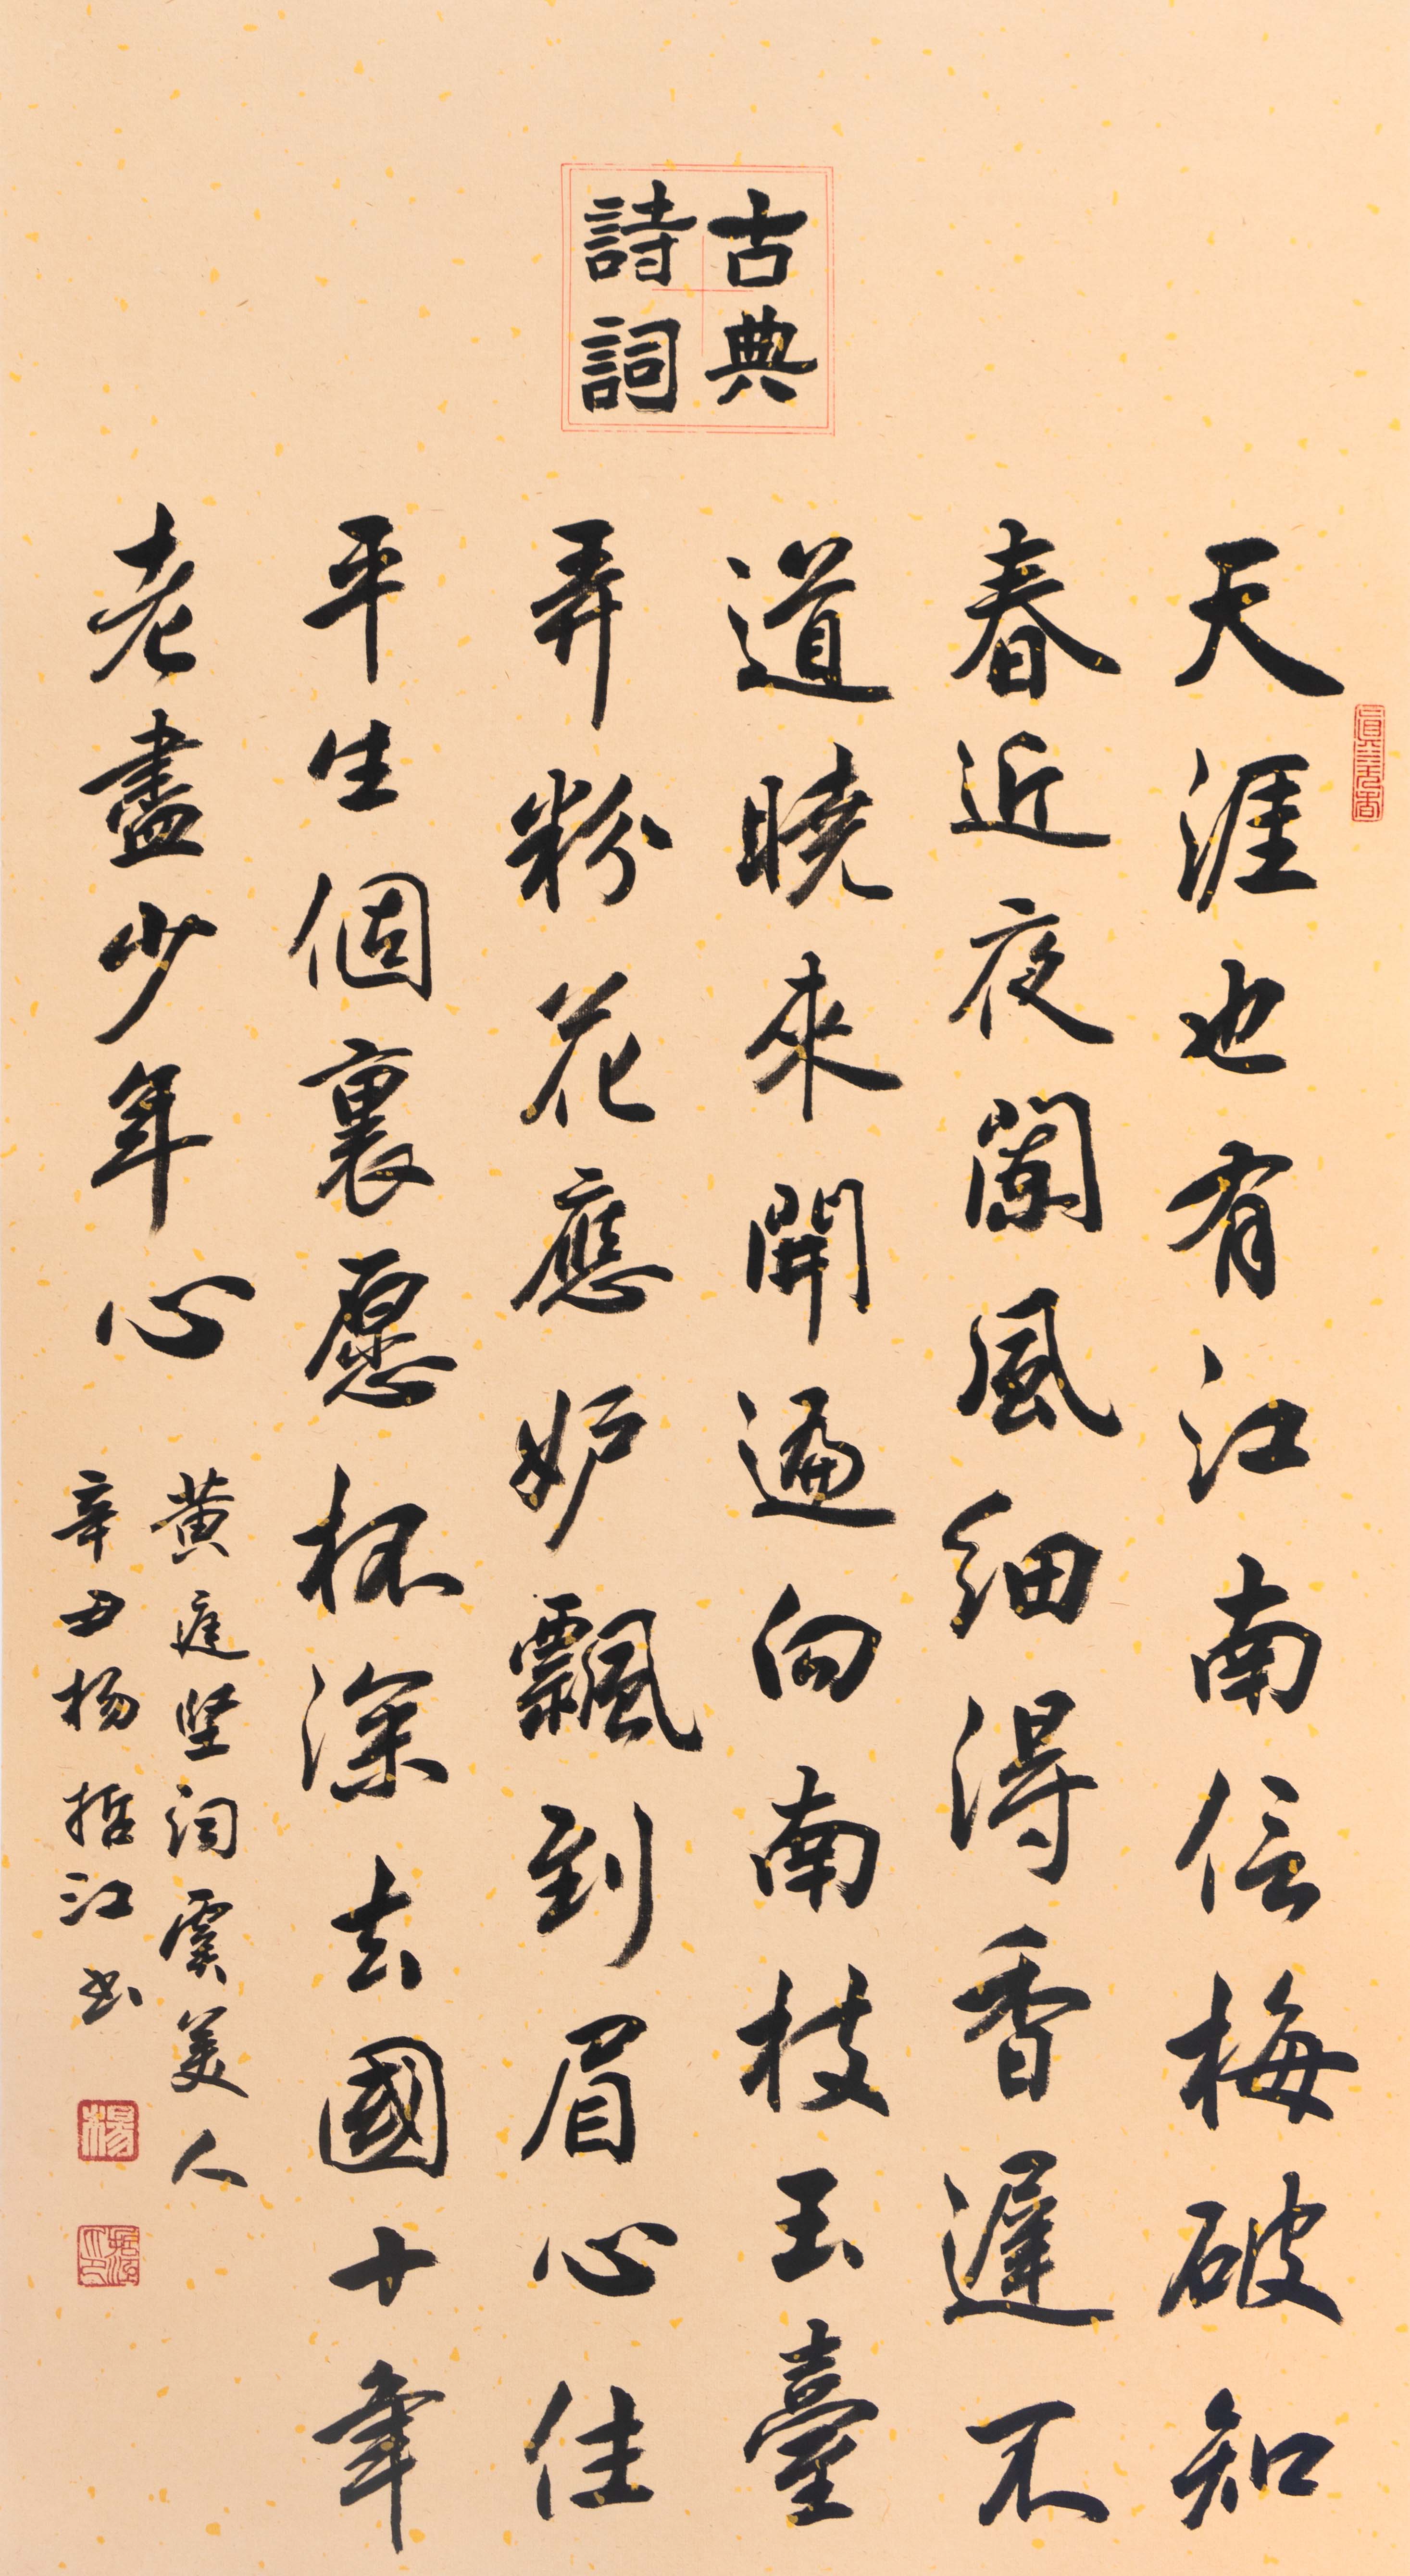 古典
詩詞
天涯也有江南信梅破知
春近夜闌風細得香遲不
道曉來開遍向南枝玉臺
弄粉花應妒飄到眉心住
平生個裏愿杯深去國十年
老盡少年心
黄庭坚词虞美人
辛丑杨哲江书
楊